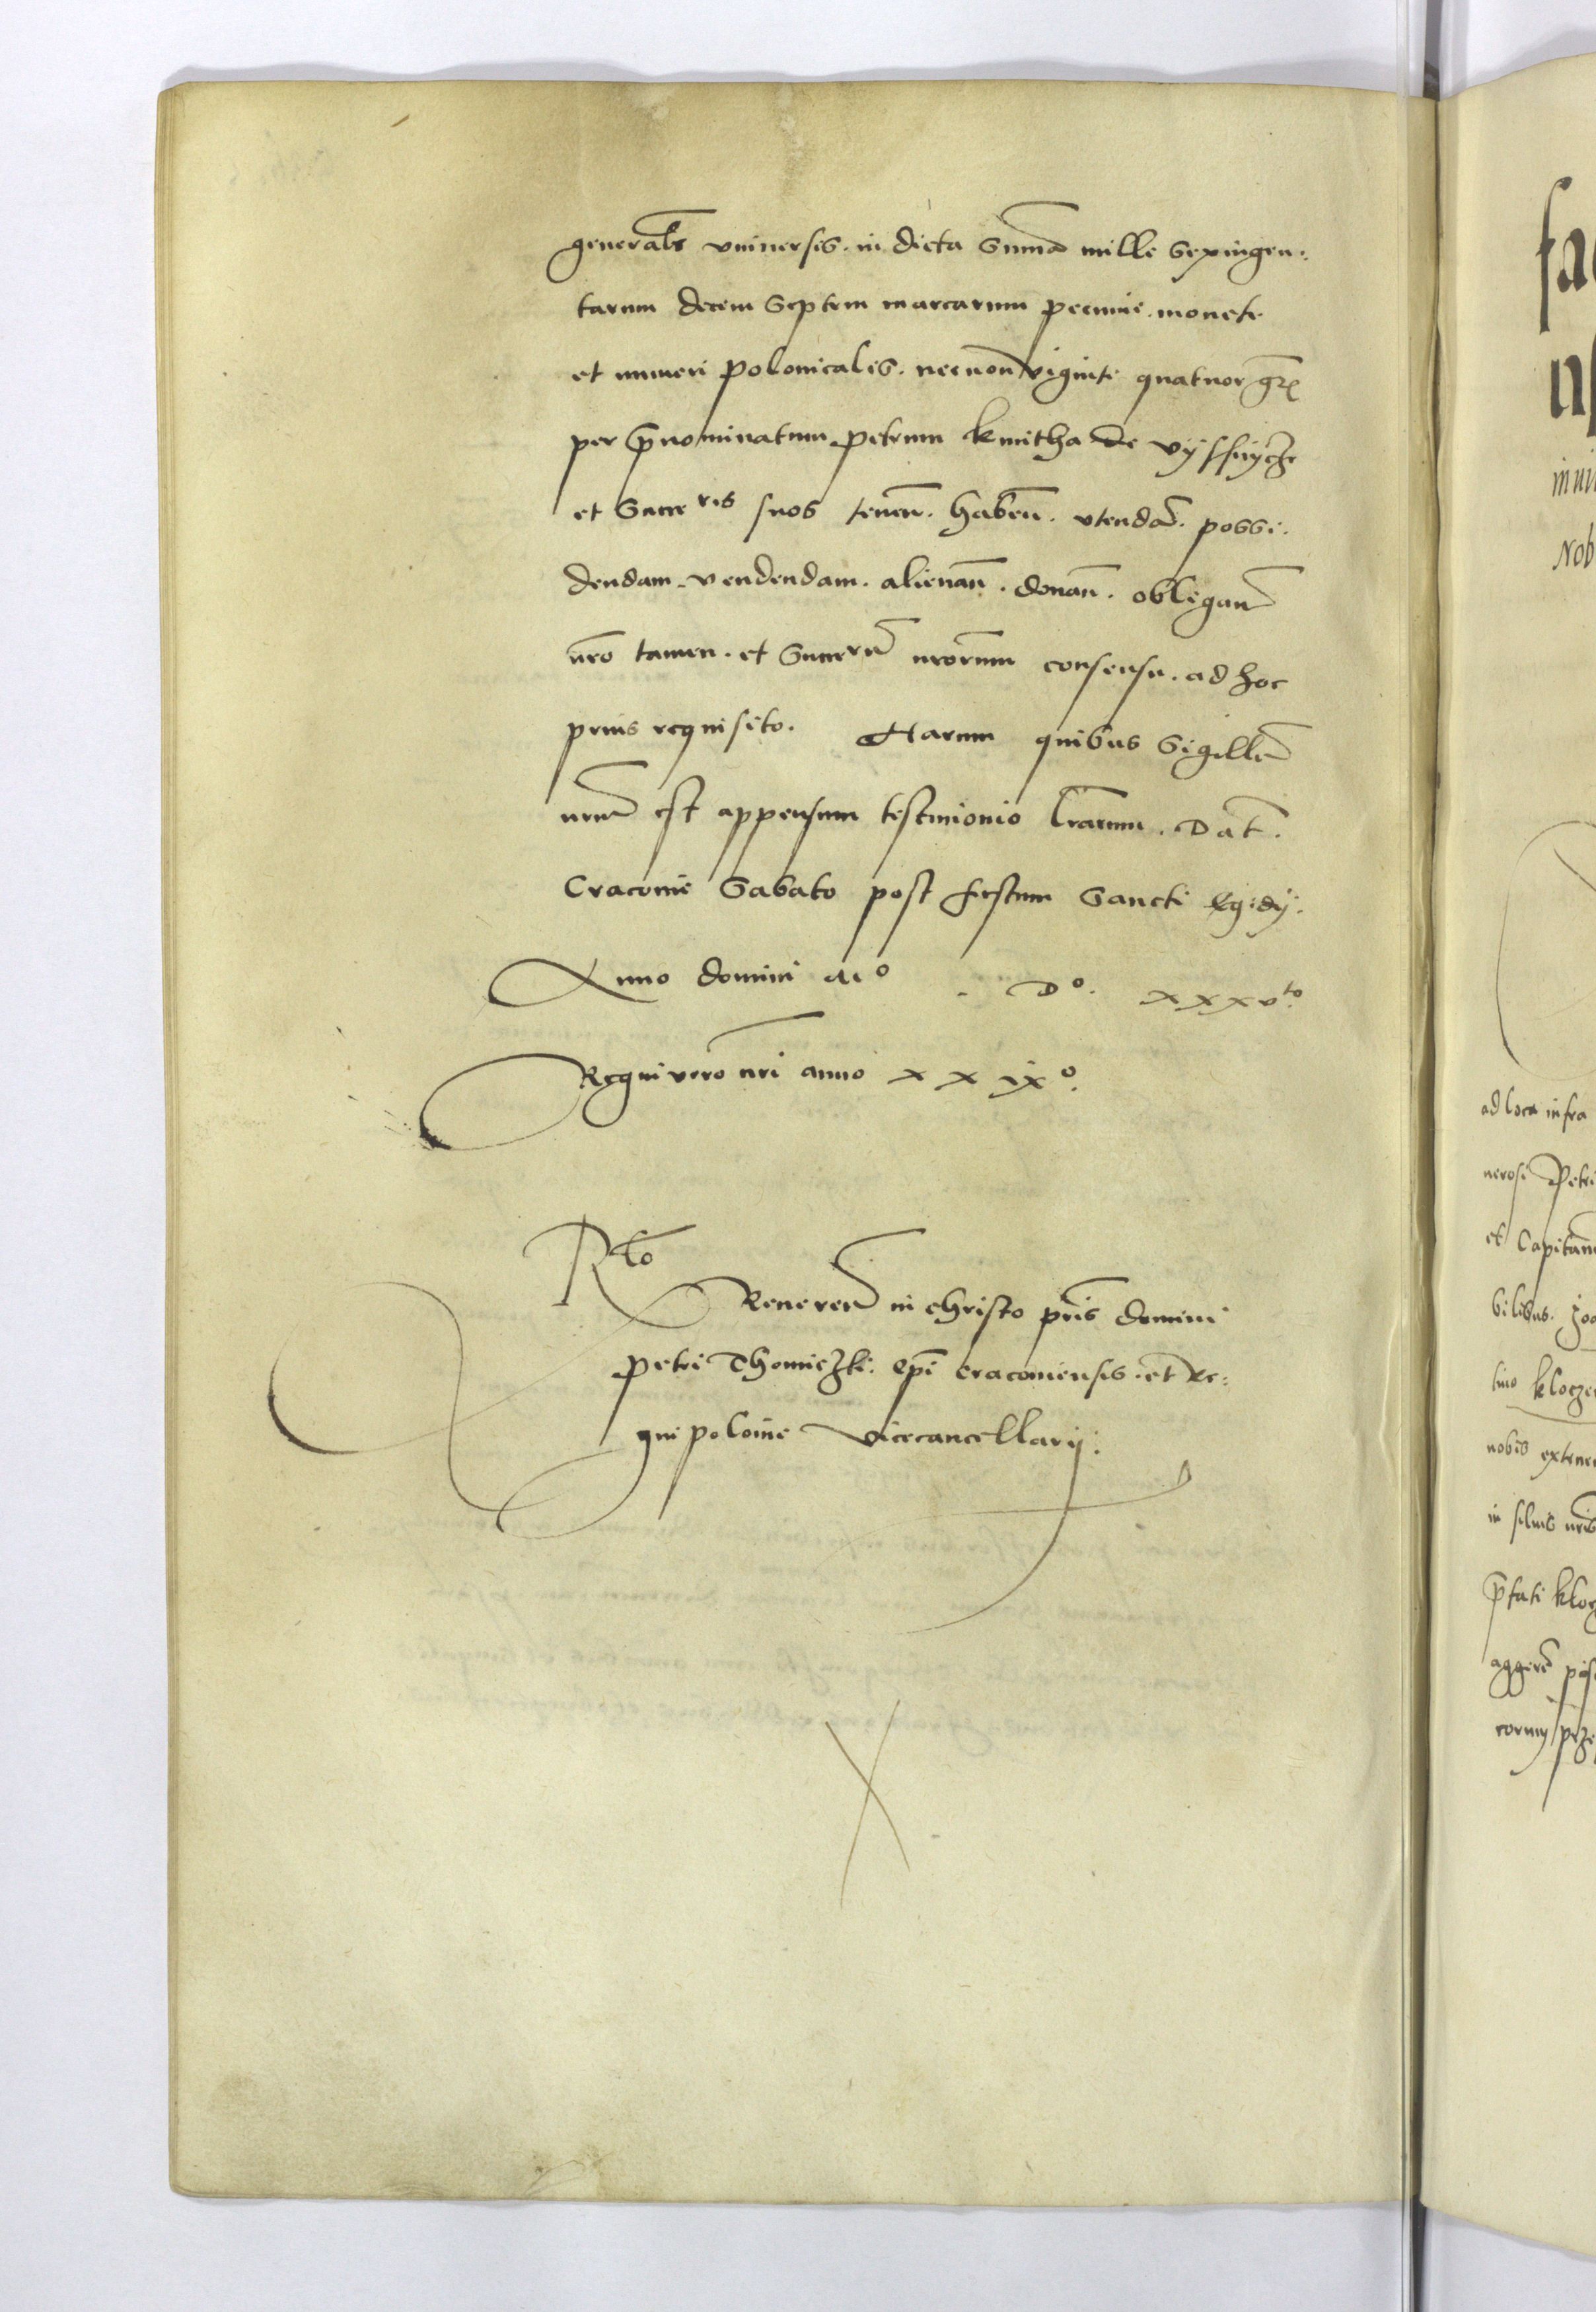 generalr̄ vniuersis. in dicta Summa mille Sexingen:
tarum decem Septem marcarum pecunie. monete
et numeri polonicalis. necnon viginti quatuor gr̄
per p̄nominatum petrum kmitha de vijssnijcze
et Succres suos tenen̄. haben̄. vtendā. possi.
dendam. vendendam. alienan̄. donan̄. obligan̄
nr̄o tamen. et Succrū nr̄orum consensu. ad hoc
prius requisito. Harum quibus Sigillū
nr̄m est appensum testimonio lr̄arum. Dat̄.
Cracouie Sabato post festum Sancti Egidij.
Anno domini Mo. Do. xxxvto.
Regni vero nr̄i anno xxixo.
Rlō
Reueren̄ in christo pr̄is domini
petri Thomiczki. ep̄i cracouiensis. et Re:
gni polonie vicecancellarij:
fa
in
Nob
ad loca infra
nerosi Petri
et Capitan
bilibus. Joa
tino klocze
nobis extene
in siluis nr̄is
p̄fati kloc
aggerē pis